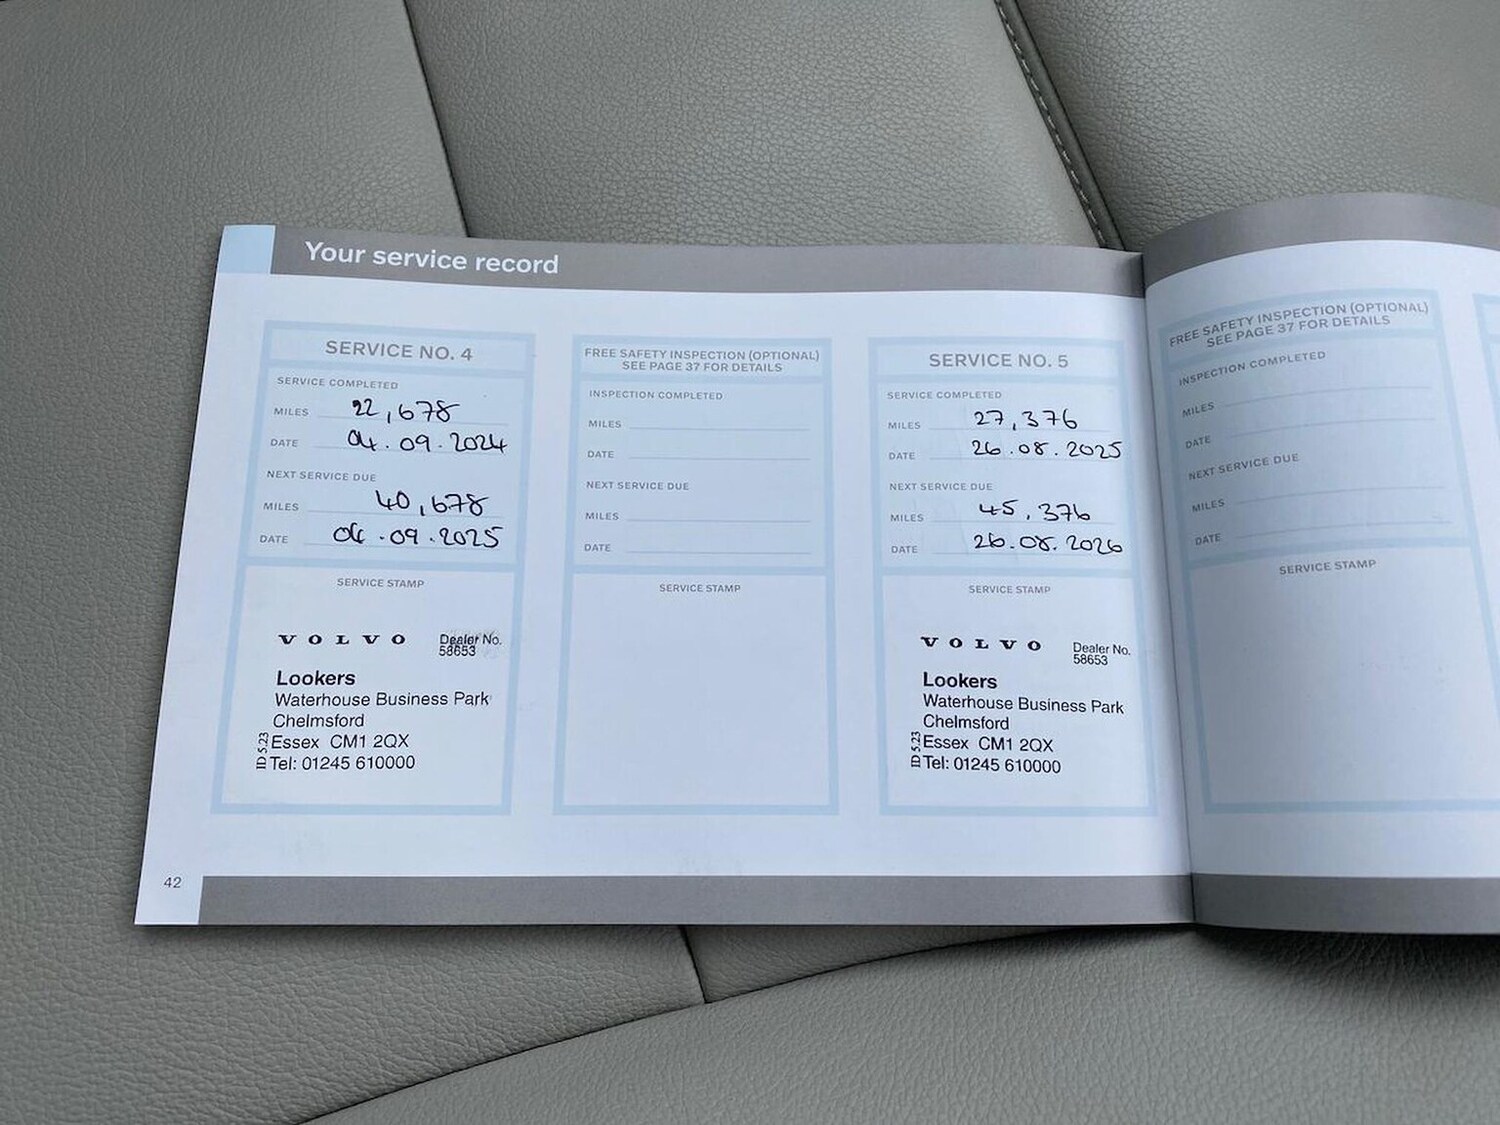 Your service record
SERVICE NO. 4
SERVICE COMPLETED
MILES 22,678
DATE 04.09.2024
NEXT SERVICE DUE
MILES 40,678
DATE 04.09.2025
SERVICE STAMP
VOLVO Dealer No.
58653
Lookers
Waterhouse Business Park
Chelmsford
Essex CM1 2QX
Tel: 01245 610000
ID 5.23
FREE SAFETY INSPECTION (OPTIONAL)
SEE PAGE 37 FOR DETAILS
INSPECTION COMPLETED
MILES
DATE
NEXT SERVICE DUE
MILES
DATE
SERVICE STAMP
SERVICE NO. 5
SERVICE COMPLETED
MILES 27,376
DATE 26.08.2025
NEXT SERVICE DUE
MILES 45,376
DATE 26.08.2026
SERVICE STAMP
VOLVO Dealer No.
58653
Lookers
Waterhouse Business Park
Chelmsford
Essex CM1 2QX
Tel: 01245 610000
ID 5.23
FREE SAFETY INSPECTION (OPTIONAL)
SEE PAGE 37 FOR DETAILS
INSPECTION COMPLETED
MILES
DATE
NEXT SERVICE DUE
MILES
DATE
SERVICE STAMP
42